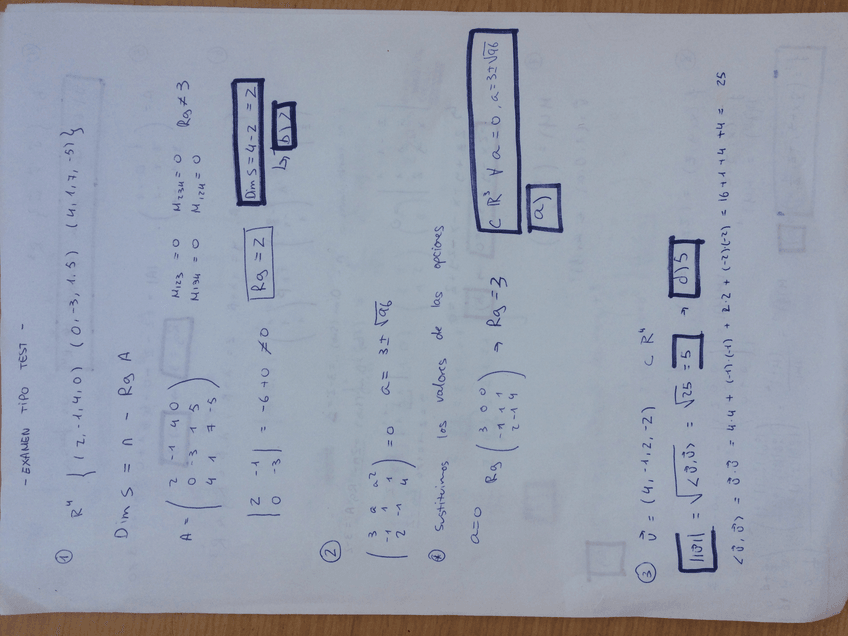 - EXAMEN TIPO TEST -
① R⁴ { (2, -1, 4, 0) (0, -3, 1, 5) (4, 1, 7, -5) }
Dim S = n - Rg A
A = ( 2 -1 4 0
0 -3 1 5
4 1 7 -5 )
M₁₂₃ = 0 M₂₃₄ = 0
M₁₃₄ = 0 M₁₂₄ = 0
Rg ≠ 3
| 2 -1
0 -3 | = -6 + 0 ≠ 0
Rg = 2
Dim S = 4 - 2 = 2
↳ b) 2
② ( 3 a a²
-1 1 1
2 -1 4 ) = 0 a = 3 ± √96
* Sustituimos los valores de las opciones
a=0 Rg ( 3 0 0
-1 1 1
2 -1 4 ) → Rg = 3
C R³ ∀ a = 0, a = 3 ± √96
a)
③ v⃗ = (4, -1, 2, -2) C R⁴
||v⃗|| = √<v⃗, v⃗> = √25 = 5 → d) 5
<v⃗, v⃗> = v⃗ · v⃗ = 4·4 + (-1)·(-1) + 2·2 + (-2)·(-2) = 16 + 1 + 4 + 4 = 25